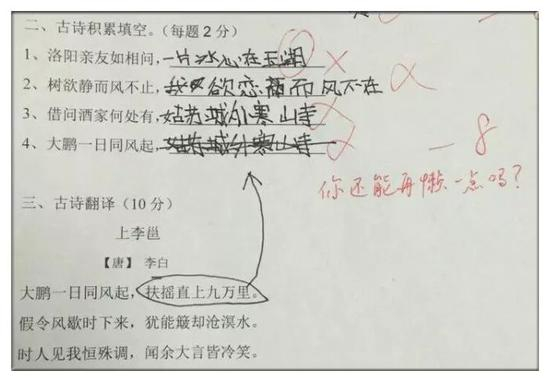 二、古诗积累填空。（每题2分）
1、洛阳亲友如相问，一片冰心在玉湖 ×
2、树欲静而风不止，我欲恋而风不在
3、借问酒家何处有，姑苏城外寒山寺
4、大鹏一日同风起，姑苏城外寒山寺
-8
你还能再懒一点吗？
三、古诗翻译（10分）
上李邕
【唐】 李白
大鹏一日同风起，扶摇直上九万里。
假令风歇时下来，犹能簸却沧溟水。
时人见我恒殊调，闻余大言皆冷笑。